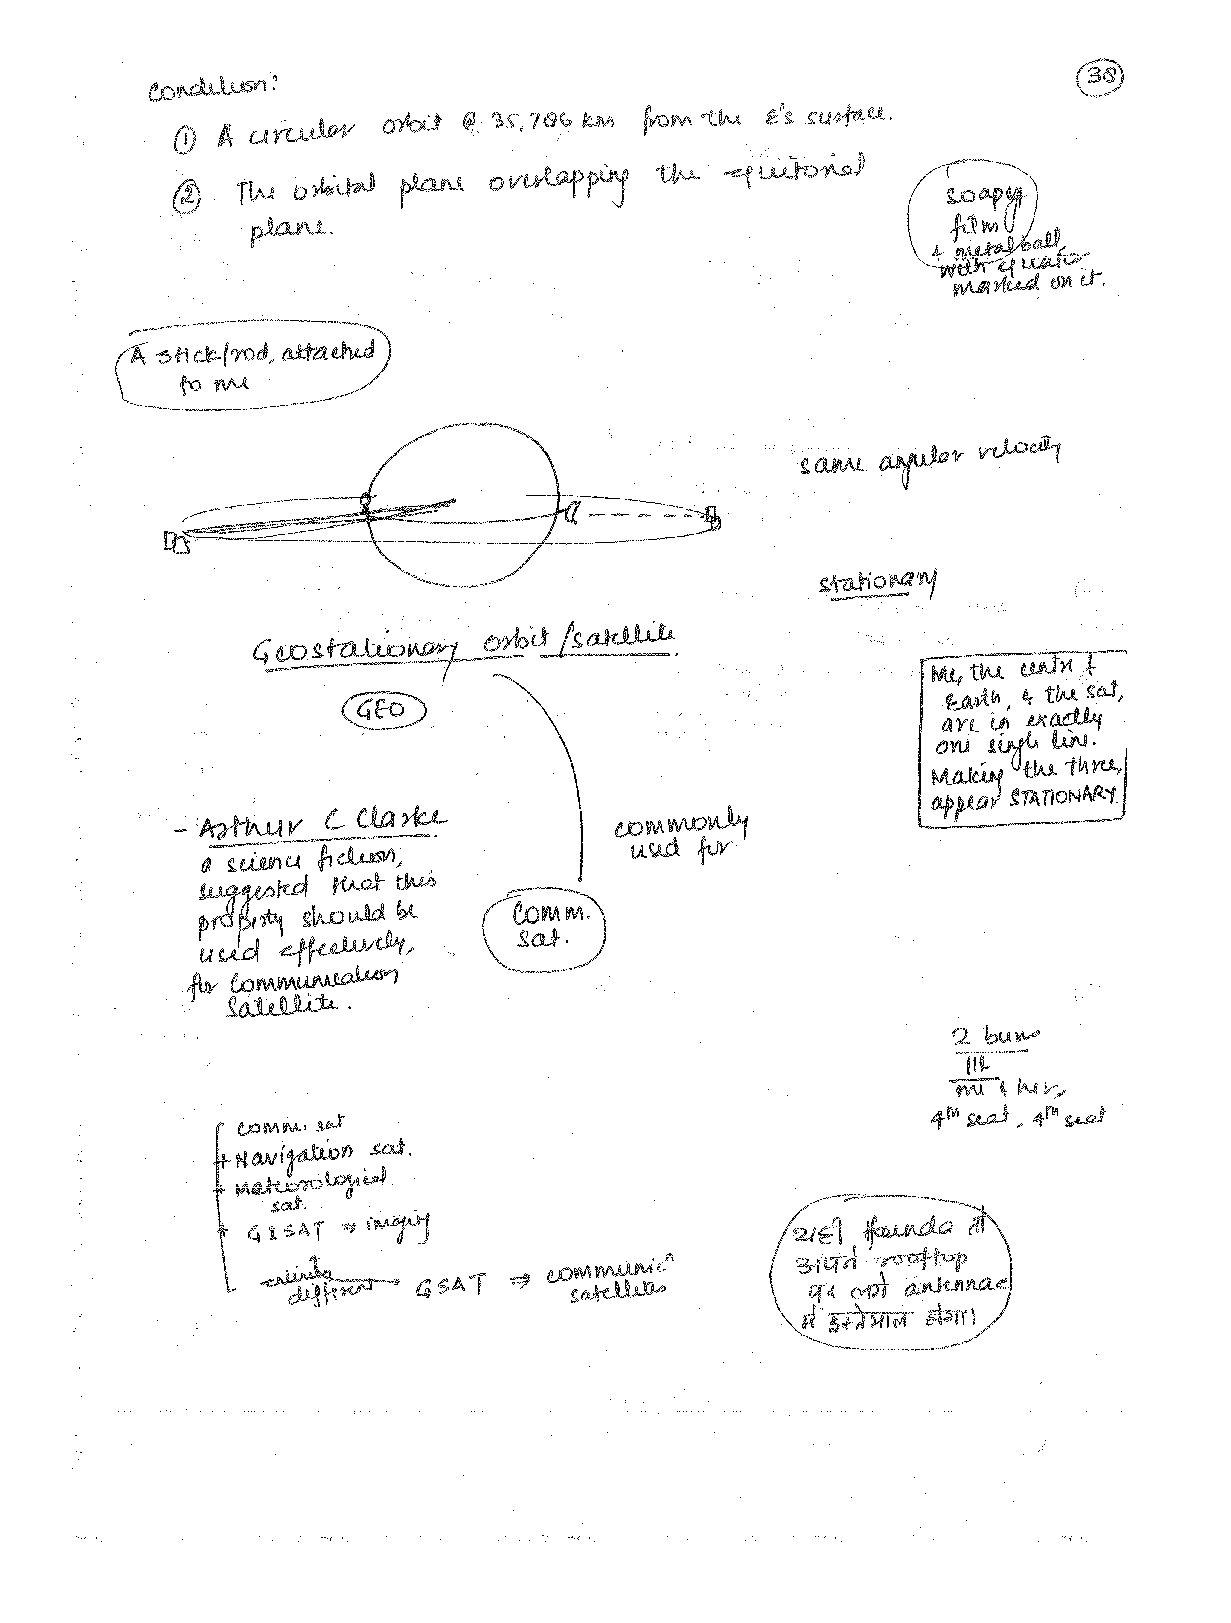 38
Condition:
① A circular orbit @ 35,786 km from the E's surface.
② The orbital plane overlapping the equitorial
plane.
soapy
film
+ metal ball
with equator
marked on it.
A stick/rod, attached
to me
same angular velocity
stationary
Geostationary orbit/satellite
GEO
Me, the centre of
Earth, & the sat,
are in exactly
one single line.
Making the three,
appear STATIONARY.
- Arthur C Clarke
a science fiction,
suggested that this
property should be
used effectively,
for Communication
Satellite.
commonly
used for
Comm.
sat.
2 buns
me & her,
4th seat, 4th seat
Comm. sat
+ Navigation sat.
+ Meteorological
sat.
+ GISAT ⇒ imaging
different → GSAT ⇒ communicn
satellites
यही funda तो
अपने rooftop
पर लगे antennae
में इस्तेमाल होगा।